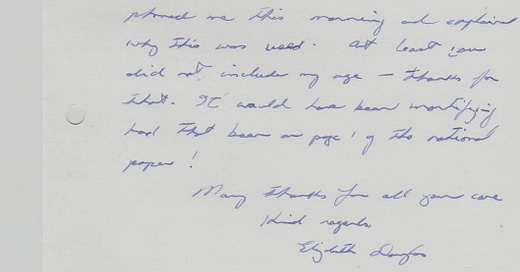 phoned me this morning and explained
why this was used. At least you
did not include my age – thanks for
that. It would have been mortifying
had that been on page 1 of the national
papers!
Many thanks for all your care
Kind regards,
Elizabeth